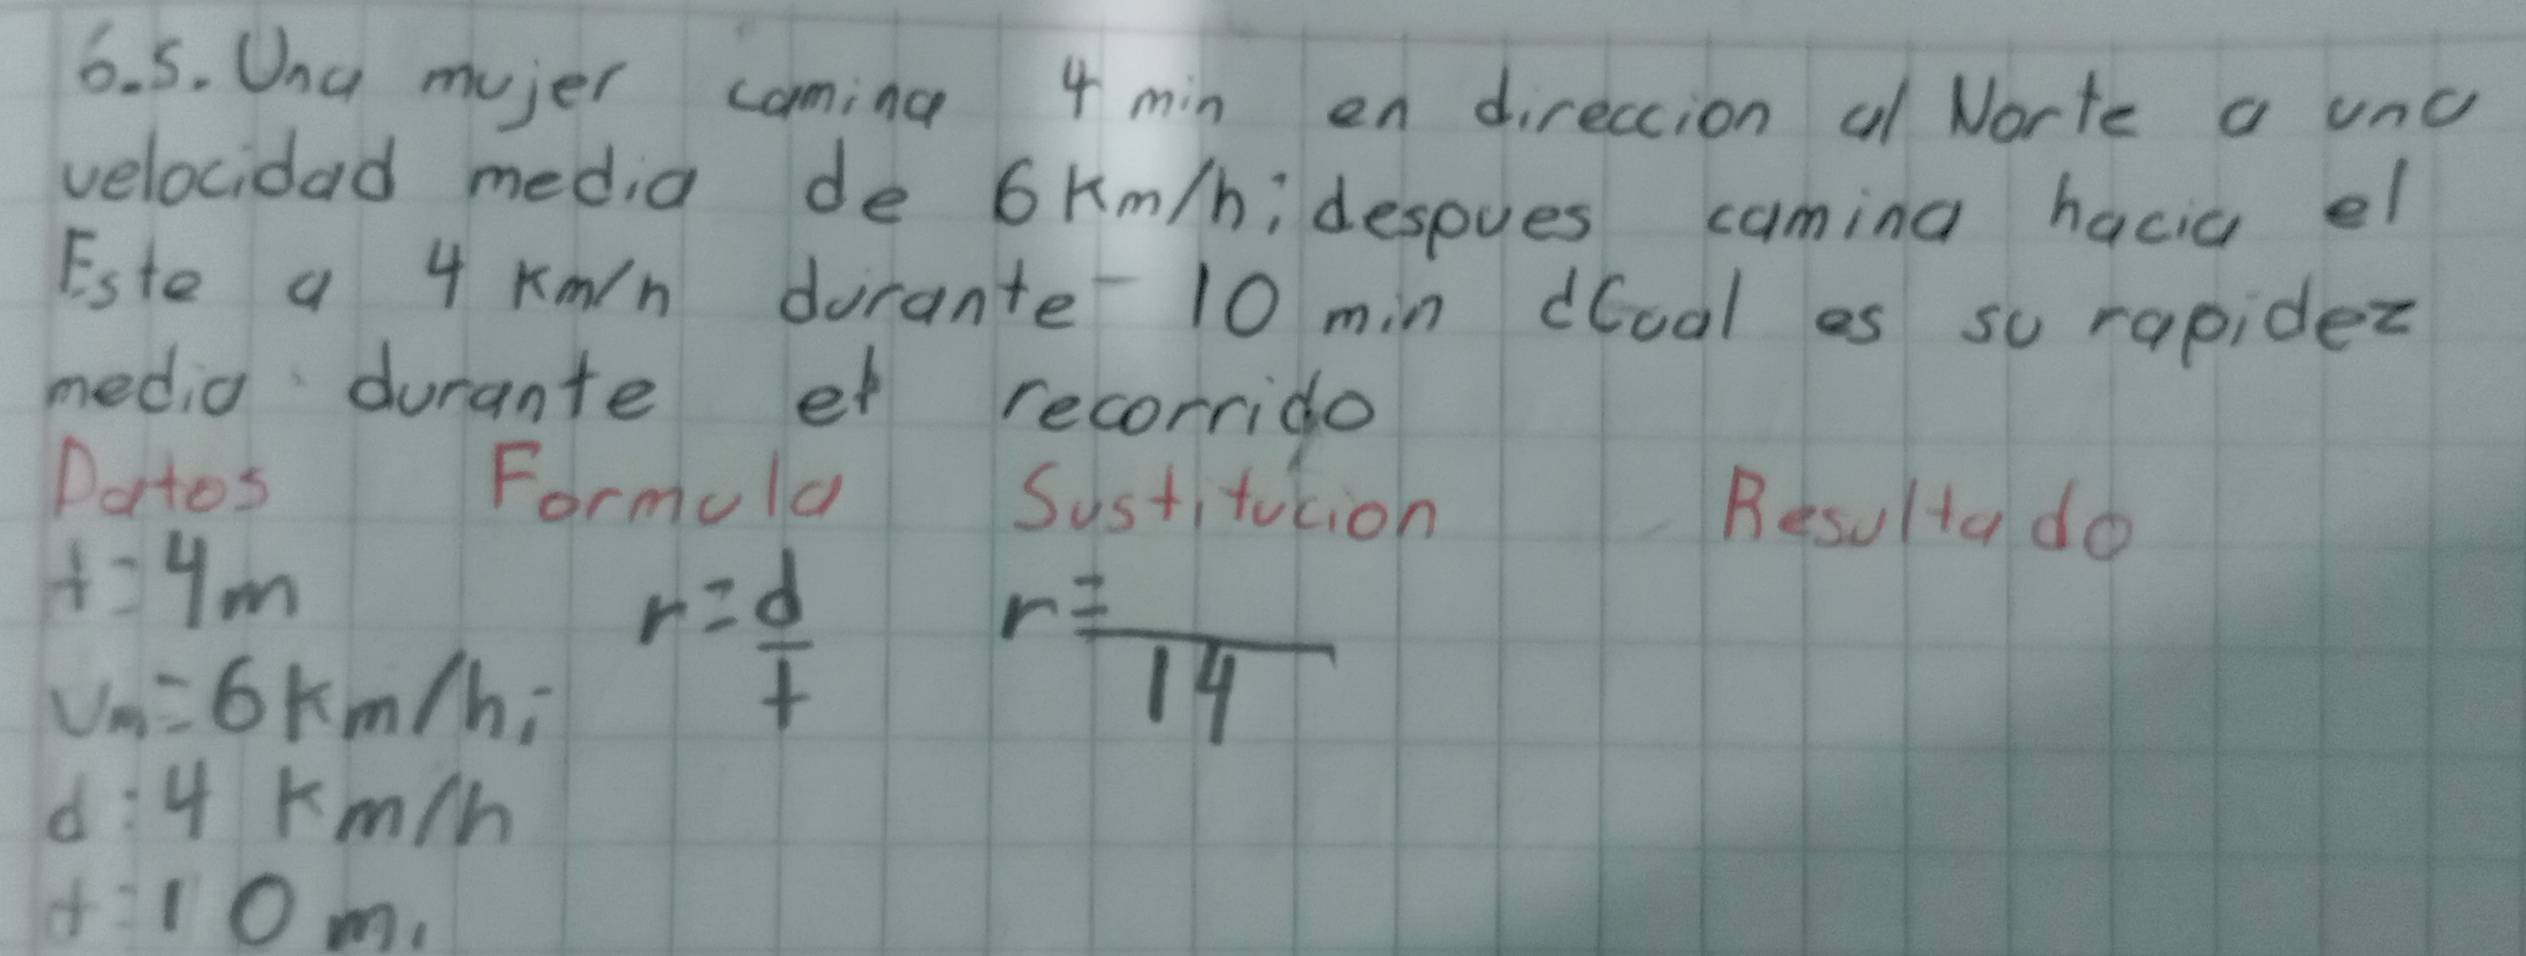 6.5. Una mujer camina 4 min en direccion al Norte a una
velocidad media de 6 Km/h; despues camina hacia el
Este a 4 Km/h durante 10 min ¿Cual es su rapidez
media durante el recorrido
Datos Formula Sustitucion Resultado
t=4m r=d/t r=/14
Vm=6Km/h;
d:4 Km/h
t=10 m.